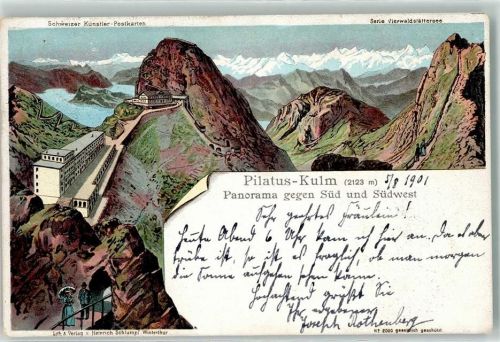 Schweizer Künstler-Postkarten
Serie Vierwaldstättersee
Pilatus-Kulm (2123 m) 5/8 1901
Panorama gegen Süd und Südwest
Sehr geehrtes Fräulein!
Heute Abend 6 Uhr kam ich hier an. Da es aber
trübe ist, so ist es fraglich, ob man morgen
die Sonne aufgehen sehen kann.
Hochachtend grüßt Sie
Ihr ergebener
Joseph Rothenberg
Lith. & Verlag v. Heinrich Schlumpf, Winterthur
gesetzlich geschützt.